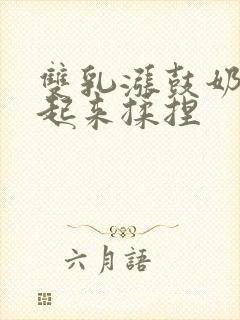 雙乳漲鼓奶
起来揉捏
六月語